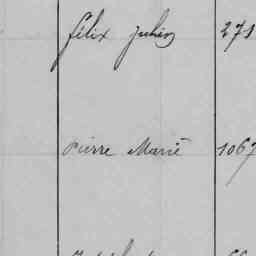 félix julien 271
Pierre Marie 1067